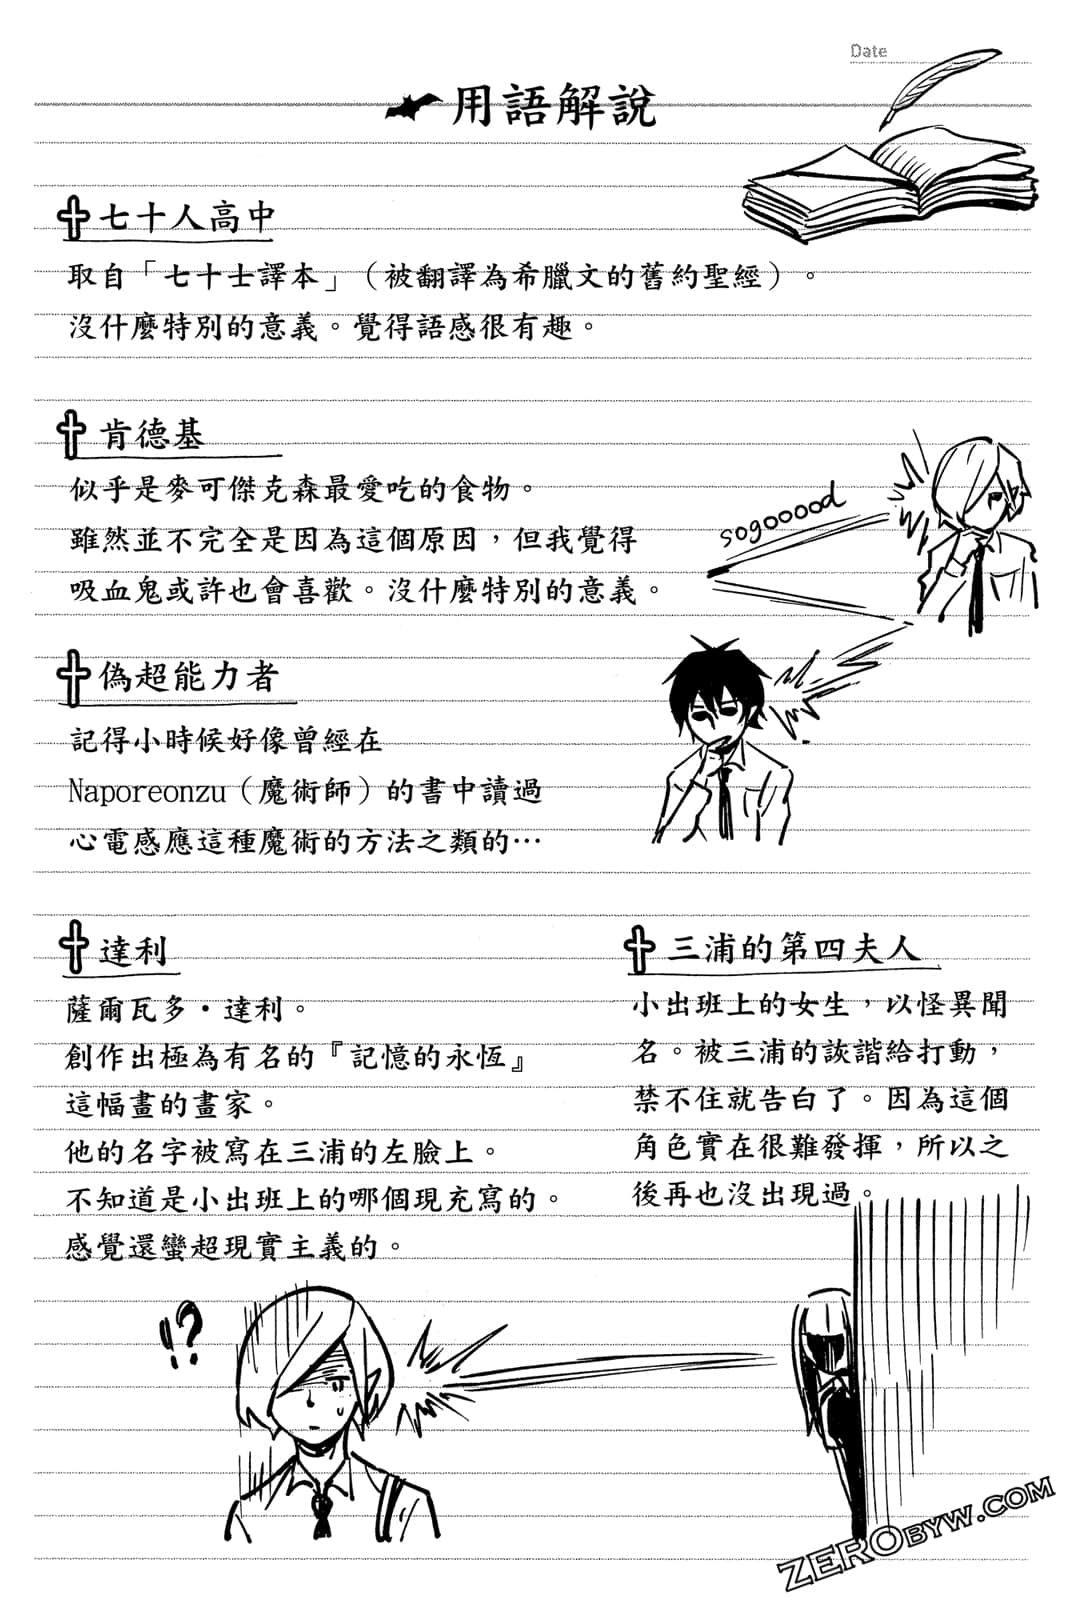 Date
用語解說
七十人高中
取自「七十士譯本」（被翻譯為希臘文的舊約聖經）。
沒什麼特別的意義。覺得語感很有趣。
肯德基
似乎是麥可傑克森最愛吃的食物。
雖然並不完全是因為這個原因，但我覺得
吸血鬼或許也會喜歡。沒什麼特別的意義。
sogooood
偽超能力者
記得小時候好像曾經在
Naporeonzu（魔術師）的書中讀過
心電感應這種魔術的方法之類的…
達利
薩爾瓦多・達利。
創作出極為有名的『記憶的永恆』
這幅畫的畫家。
他的名字被寫在三浦的左臉上。
不知道是小出班上的哪個現充寫的。
感覺還蠻超現實主義的。
三浦的第四夫人
小出班上的女生，以怪異聞
名。被三浦的詼諧給打動，
禁不住就告白了。因為這個
角色實在很難發揮，所以之
後再也沒出現過。
!?
ZEROBYW.COM